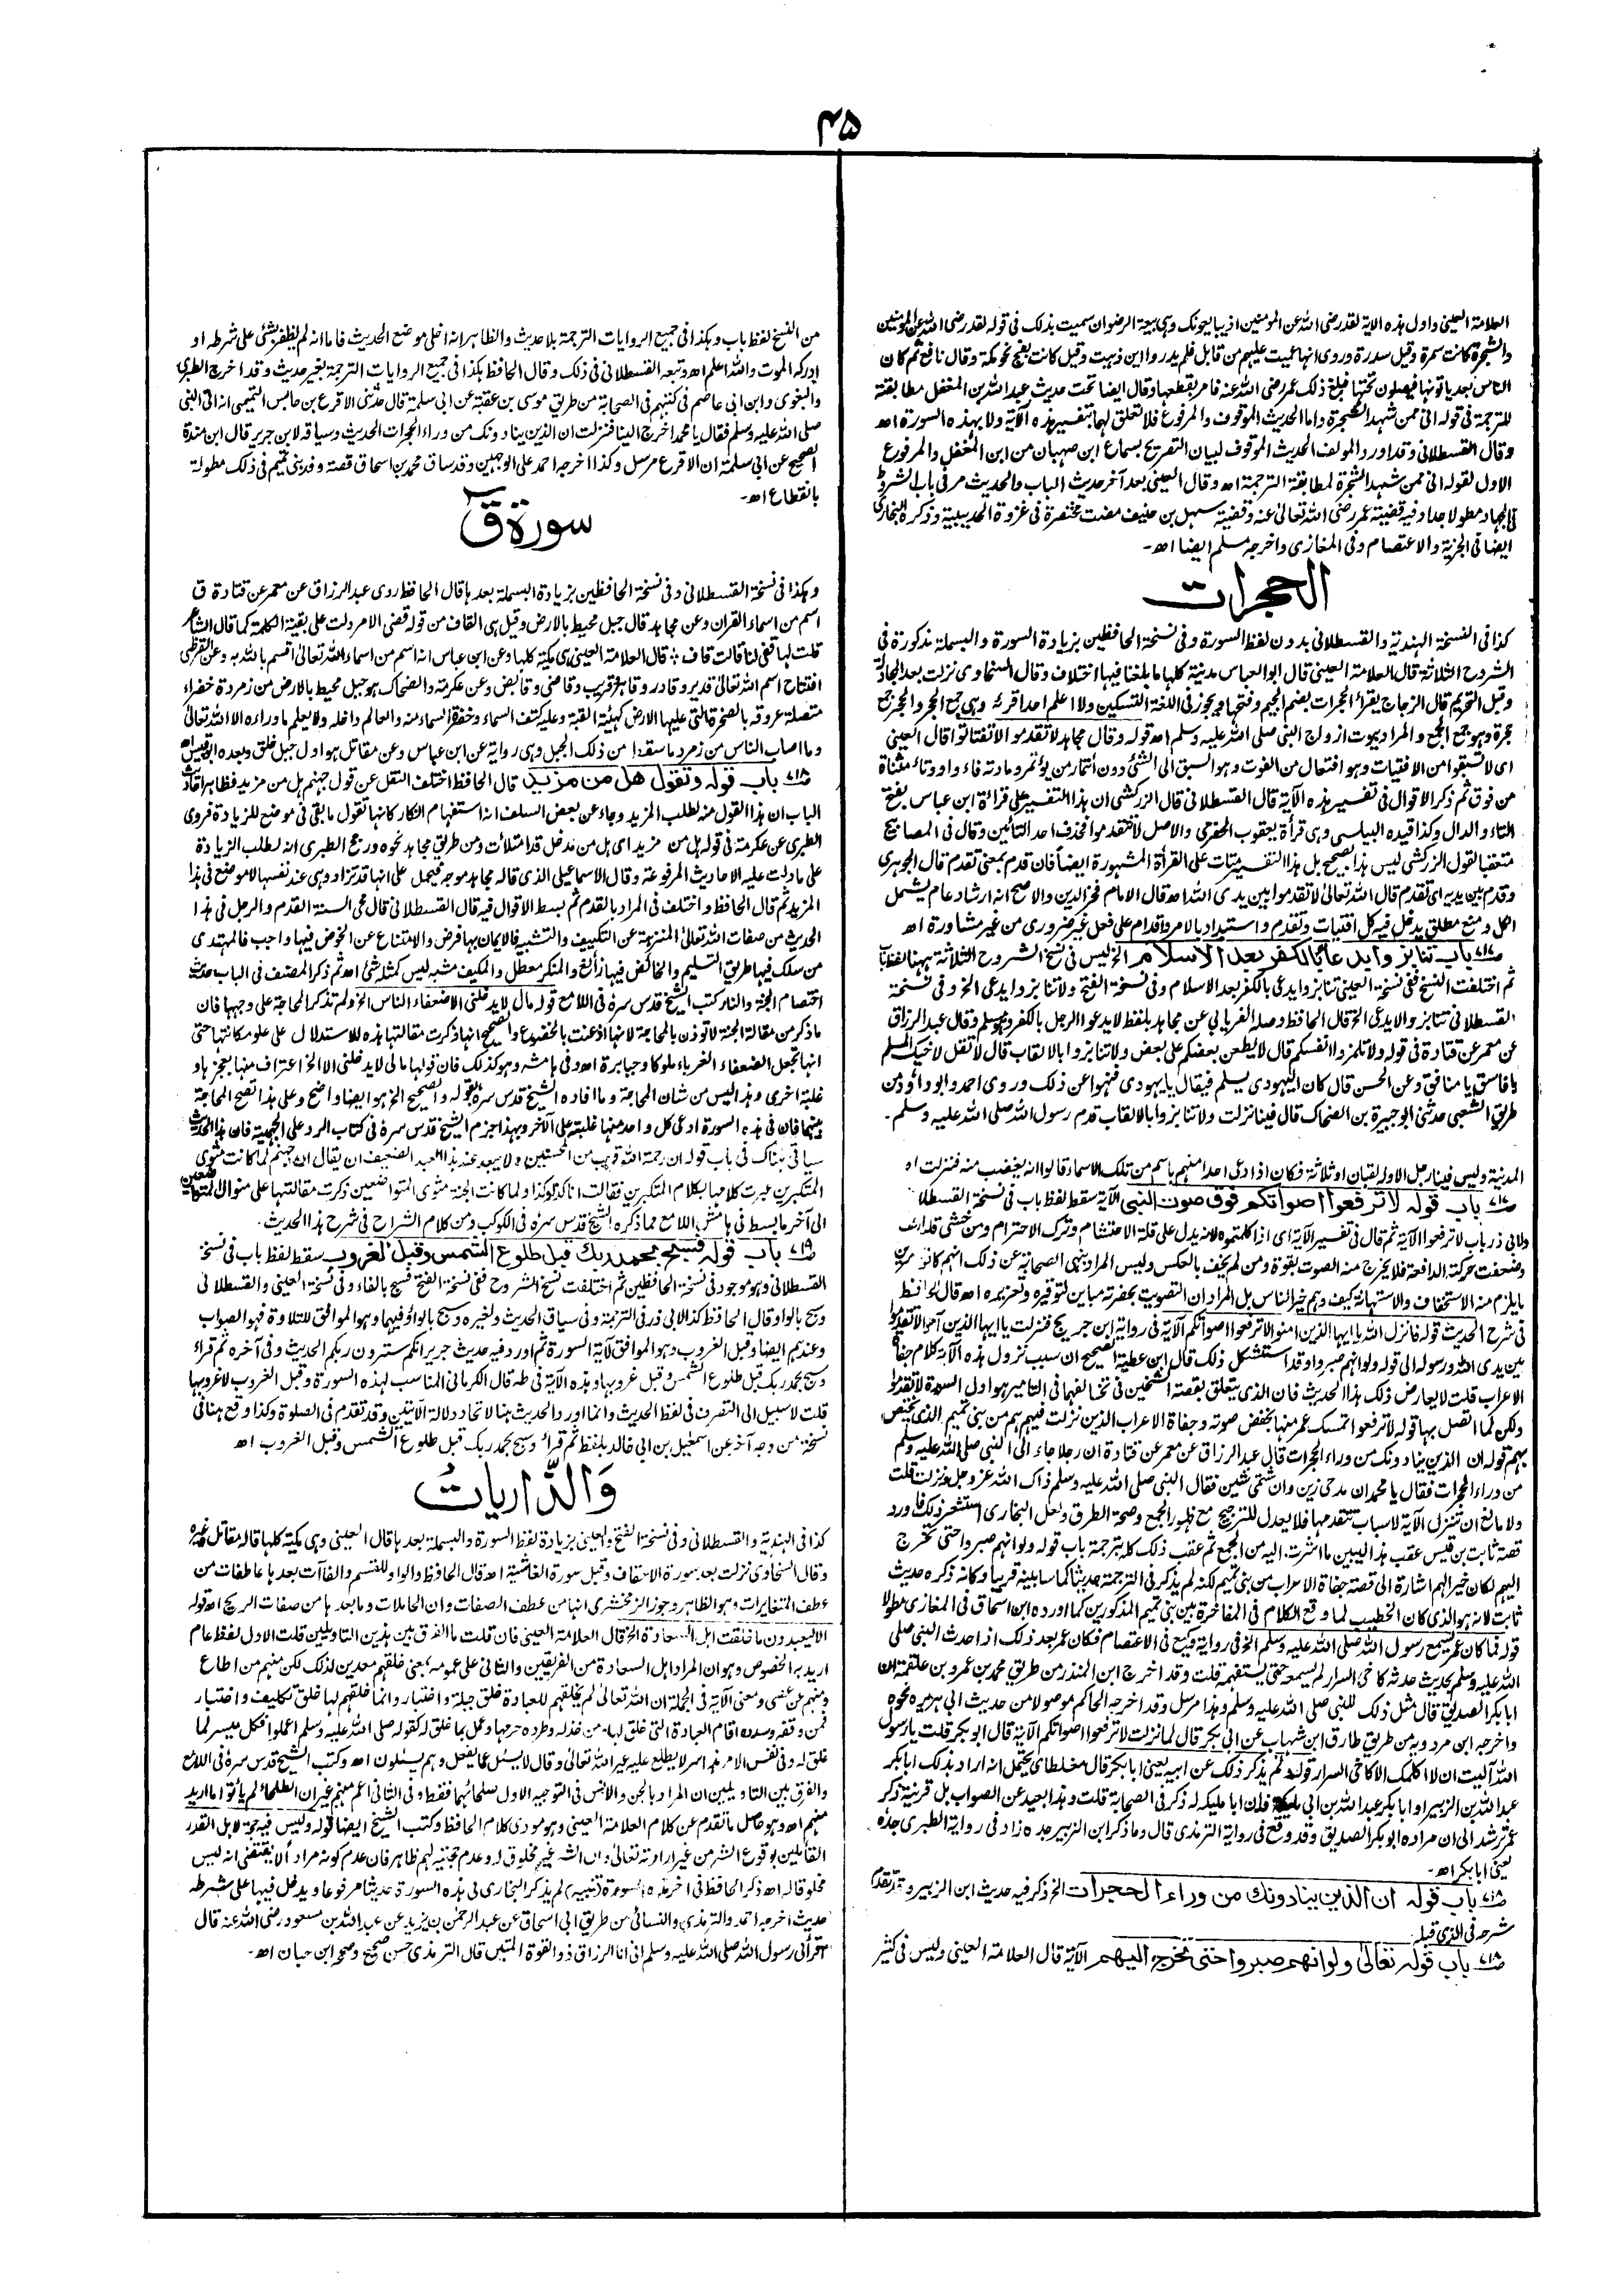 ۴۵
العلامة العينى واول هذه الاية لقد رضى الله عن المؤمنين اذ يبايعونك وهى بيعة الرضوان سميت بذلك فى قوله لقد رضى الله عن المؤمنين
والشجرة كانت سمرة وقيل سدرة وروى انها عميت عليهم من قابل فلم يدروا اين ذهبت وقيل كانت بفج نحو مكة وقال نافع ثم كان
الناس بعد ياتونها فيصلون تحتها فبلغ ذلك عمر رضى الله عنه فامر بقطعها وقال ايضا تحت حديث عبد الله بن المغفل مطابقته
للترجمة فى قوله انى ممن شهد الشجرة واما الحديث الموقوف والمرفوع فلا تعلق لهما بتفسير هذه الآية ولا بهذه السورة اھ
وقال القسطلانى وقد اورد المولف الحديث الموقوف لبيان التصريح بسماع ابن صهبان من ابن المغفل والمرفوع
الاول لقوله انى ممن شهد الشجرة لمطابقة الترجمة اھ وقال العينى بعد آخر حديث الباب والحديث مر فى باب الشروط
فى الجهاد مطولا جدا وفيه قضية عمر رضى الله تعالى عنه وقضية سهيل بن حنيف مضت مختصرة فى غزوة الحديبية وذكره البخارى
ايضا فى الجزية والاعتصام وفى المغازى واخرجه مسلم ايضا اھ۔
الحجرات
كذا فى النسخة الهندية والقسطلانى بدون لفظ السورة وفى نسخة الحافظين بزيادة السورة والبسملة مذكورة فى
الشروح الثلاثة قال العلامة العينى قال ابو العباس مدنية كلها ما بلغنا فيها اختلاف وقال السخاوى نزلت بعد المجادلة
وقبل التحريم قال الزجاج يقرأ الحجرات بضم الجيم وفتحها ويجوز فى اللغة التسكين ولا اعلم احدا قرءه وهى جمع الحجر والحجر جمع
حجرة وهو جمع الجمع والمراد بيوت ازواج النبى صلى الله عليه وسلم اھ قوله وقال مجاهد لا تقدموا لا تفتاتوا قال العينى
اى لا تسبقوا من الافتيات وهو افتعال من الفوت وهو السبق الى الشئ دون ائتمار من يؤتمر ومادته فاء واو وتاء مثناة
من فوق ثم ذكر الاقوال فى تفسير هذه الآية قال القسطلانى قال الزركشى ان هذا التفسير على قراءة ابن عباس بفتح
التاء والدال وكذا قيده البياسى وهى قرأة يعقوب الحضرمى والاصل لا تتقدموا فحذف احد التائين وقال فى المصابيح
متعقبا لقول الزركشى ليس هذا بصحيح بل هذا التفسير متات على القرأة المشهورة ايضا فان قدم بمعنى تقدم قال الجوهرى
وقدم بين يديه اى تقدم قال الله تعالى لا تقدموا بين يدى الله اھ قال الامام فخر الدين والاصح انه ارشاد عام يشمل
الكل ومنع مطلق يدخل فيه كل افتيات وتقدم واستبداد بالامر واقدام على فعل غير ضرورى من غير مشاورة اھ
باب تنابزوا يدعا بالكفر بعد الاسلام الخ ليس فى نسخ الشروح الثلاثة ههنا لفظ باب
ثم اختلفت النسخ ففى نسخة العينى تنابزوا يدعى بالكفر بعد الاسلام وفى نسخة الفتح ولا تنابزوا يدعى الخ وفى نسخة
القسطلانى تنابزوا لا يدعى الخ قال الحافظ وصله الفريابى عن مجاهد بلفظ لا يدعو الرجل بالكفر وهو مسلم وقال عبد الرزاق
عن معمر عن قتادة فى قوله ولا تلمزوا انفسكم قال لا يطعن بعضكم على بعض ولا تنابزوا بالالقاب قال لا تقل لاخيك المسلم
يا فاسق يا منافق وعن الحسن قال كان اليهودى يسلم فيقال يا يهودى فنهوا عن ذلك وروى احمد وابو داود من
طريق الشعبى حدثنى ابو جبيرة بن الضحاك قال فينا نزلت ولا تنابزوا بالالقاب قدم رسول الله صلى الله عليه وسلم۔
المدينة وليس فينا رجل الا وله لقبان او ثلاثة فكان اذا دعى احدا منهم باسم من تلك الاسماء قالوا انه يغضب منه فنزلت اھ
باب قوله لا ترفعوا اصواتكم فوق صوت النبى الآية سقط لفظ باب فى نسخة القسطلا
ولابى ذر باب لا ترفعوا الآية ثم قال فى تفسير الآية اى اذا كلمتموه لانه يدل على قلة الاحتشام وترك الاحترام ومن خشى قلبه ارتجف
وضعفت حركته الدافعة فلا يخرج منه الصوت بقوة ومن لم يخف بالعكس وليس المراد بنهى الصحابة عن ذلك انهم كانوا مباشرين
ما يلزم منه الاستخفاف والاستهانة كيف وهم خير الناس بل المراد ان التصويت بحضرته مباين لتوقيره وتعزيره اھ قال الحافظ
فى شرح الحديث قوله فانزل الله يا ايها الذين امنوا لا ترفعوا اصواتكم الآية فى رواية ابن جريج فنزلت يا ايها الذين آمنوا لا تقدموا
بين يدى الله ورسوله الى قوله ولو انهم صبروا وقد استشكل ذلك قال ابن عطية الصحيح ان سبب نزول هذه الآية كلام جفاة
الاعراب قلت لا يعارض ذلك هذا الحديث فان الذى يتعلق بقصة الشيخين فى تخالفهما فى التامير هو اول السورة لا تقدموا
ولكن لما اتصل بها قوله لا ترفعوا تمسك عمر منها بخفض صوته وجفاة الاعراب الذين نزلت فيهم هم من بنى تميم الذى يختص
بهم قوله ان الذين ينادونك من وراء الحجرات قال عبد الرزاق عن معمر عن قتادة ان رجلا جاء الى النبى صلى الله عليه وسلم
من وراء الحجرات فقال يا محمد ان مدحى زين وان شتمى شين فقال النبى صلى الله عليه وسلم ذاك الله عز وجل ونزلت قلت
ولا مانع ان تنزل الآية لاسباب تتقدمها فلا يعدل للترجيح مع ظهور الجمع وصحة الطرق ولعل البخارى استشعر ذلك فاورد
قصة ثابت بن قيس عقب هذا ليبين ما اشرت اليه من الجمع ثم عقب ذلك كله بترجمة باب قوله ولو انهم صبروا حتى تخرج
اليهم لكان خيرا لهم اشارة الى قصة جفاة الاعراب من بنى تميم لكنه لم يذكر فى الترجمة حديثا كما سابينه قريبا وكانه ذكر حديث
ثابت لانه هو الذى كان الخطيب لما وقع الكلام فى المفاخرة بين بنى تميم المذكورين كما اورده ابن اسحاق فى المغازى مطولا
قوله فما كان عمر يسمع رسول الله صلى الله عليه وسلم الخ وفى رواية وكيع فى الاعتصام فكان عمر بعد ذلك اذا حدث النبى صلى
الله عليه وسلم بحديث حدثه كاخى السرار لم يسمعه حتى يستفهمه قلت وقد اخرج ابن المنذر من طريق محمد بن عمرو بن علقمة ان
ابا بكر الصديق قال مثل ذلك للنبى صلى الله عليه وسلم وهذا مرسل وقد اخرجه الحاكم موصولا من حديث ابى هريرة نحوه
واخرجه ابن مردويه من طريق طارق ابن شهاب عن ابى بكر قال لما نزلت لا ترفعوا اصواتكم الآية قال ابو بكر قلت يا رسول
الله آليت ان لا اكلمك الا كاخى السرار قوله ولم يذكر ذلك عن ابيه يعنى ابا بكر قال مغلطاى يحتمل انه اراد بذلك ابا بكر
عبد الله بن الزبير او ابا بكر عبد الله بن ابى مليكة فان ابا مليكة له ذكر فى الصحابة قلت وهذا بعيد عن الصواب بل قرينة ذكر
عمر ترشد الى ان مراده ابو بكر الصديق وقد وقع فى رواية الترمذى قال وما ذكر ابن الزبير جده زاد فى رواية الطبرى جده
يعنى ابا بكر اھ۔
باب قوله ان الذين ينادونك من وراء الحجرات الخ ذكر فيه حديث ابن الزبير وقد تقدم
شرحه فى الذى قبله
باب قوله تعالى ولو انهم صبروا حتى تخرج اليهم الآية قال العلامة العينى وليس فى كثير
من النسخ لفظ باب وهكذا فى جميع الروايات الترجمة بلا حديث والظاهر انه اخلى موضع الحديث فاما انه لم يظفر بشئ على شرطه او
ادركه الموت والله اعلم اھ وتبعه القسطلانى فى ذلك وقال الحافظ هكذا فى جميع الروايات الترجمة بغير حديث وقد اخرج الطبرى
والبغوى وابن ابى عاصم فى كتبهم فى الصحابة من طريق موسى بن عقبة عن ابى سلمة قال حدثنى الاقرع بن حابس التميمى انه اتى النبى
صلى الله عليه وسلم فقال يا محمد اخرج الينا فنزلت ان الذين ينادونك من وراء الحجرات الحديث وسياقه لابن جرير قال ابن مندة
الصحيح عن ابى سلمة ان الاقرع مرسل وكذا اخرجه احمد على الوجهين وقد ساق محمد بن اسحاق قصة وفد بنى تميم فى ذلك مطولة
بانقطاع اھ۔
سورة ق
وهكذا فى نسخة القسطلانى وفى نسخة الحافظين بزيادة البسملة بعدها قال الحافظ روى عبد الرزاق عن معمر عن قتادة ق
اسم من اسماء القران وعن مجاهد قال جبل محيط بالارض وقيل هى القاف من قوله قضى الامر دلت على بقية الكلمة كما قال الشاعر
قلت لها قفى لنا قالت قاف ؛ قال العلامة العينى هى مكية كلها وعن ابن عباس انه اسم من اسماء الله تعالى اقسم بالله به وعن القرظى
افتتاح اسم الله تعالى قدير وقادر وقاهر وقريب وقاضى وقابض وعن عكرمة والضحاك هو جبل محيط بالارض من زمردة خضراء
متصلة عروقه بالصخرة التى عليها الارض كهيئة القبة وعليه كتف السماء وخضرة السماء منه والعالم داخله ولا يعلم ما وراءه الا الله تعالى
وما اصاب الناس من زمرد ما سقط من ذلك الجبل وهى رواية عن ابن عباس وعن مقاتل هو اول جبل خلق وبعده ابو قبيس اھ
باب قوله وتقول هل من مزيد قال الحافظ اختلف النقل عن قول جهنم هل من مزيد فظاهر احاديث
الباب ان هذا القول منه لطلب المزيد وجاء عن بعض السلف انه استفهام انكار كانها تقول ما بقى فى موضع للزيادة فروى
الطبرى عن عكرمة فى قوله هل من مزيد اى هل من مدخل قد امتلات ومن طريق مجاهد نحوه ورجح الطبرى انه لطلب الزيادة
على ما دلت عليه الاحاديث المرفوعة وقال الاسماعيلى الذى قاله مجاهد موجه فيحمل على انها قد تزاد وهى عند نفسها لا موضع فى هذا
المزيد ثم قال الحافظ واختلف فى المراد بالقدم ثم بسط الاقوال فيه قال القسطلانى قال محى السنة القدم والرجل فى هذا
الحديث من صفات الله تعالى المنزهة عن التكييف والتشبيه فالايمان بها فرض والامتناع عن الخوض فيها واجب فالمهتدى
من سلك فيها طريق التسليم والخائض فيها زائغ والمنكر معطل والمكيف مشبه ليس كمثله شئ اھ ثم ذكر المصنف فى الباب حديث
اختصام الجنة والنار كتب الشيخ قدس سره فى اللامع قوله مالى لا يدخلنى الا ضعفاء الناس الخ ولم تذكر المحاجة على وجهها فان
ما ذكر من مقالة الجنة لا تؤذن بالمحاجة لانها اذعنت بالخضوع والصحيح انها ذكرت مقالتها هذه للاستدلال على علو مكانتها حتى
انها تجعل الضعفاء الغرباء ملوكا وجبابرة اھ وفى هامشه وهو كذلك فان قولها مالى لا يدخلنى الا الخ اعتراف منها بعجزها و
غلبة اخرى وهذا ليس من شان المحاجة وما افاده الشيخ قدس سره بقوله والصحيح الخ هو ايضا واضح وعلى هذا تصح المحاجة
بينهما فان فى هذه السورة ادعى كل واحد منهما غلبته على الآخر وبهذا جزم الشيخ قدس سره فى كتاب الرد على الجهمية فان هذا الحديث
سياتى هناك فى باب قوله ان رحمة الله قريب من المحسنين ولا يبعد عند هذا العبد الضعيف ان يقال ان جهنم لما كانت مثوى
المتكبرين عبرت كلامها بكلام المتكبرين فقالت انا كذا وكذا ولما كانت الجنة مثوى المتواضعين ذكرت مقالتها على منوال المتواضعين
الى آخر ما بسط فى هامش اللامع مما ذكره الشيخ قدس سره فى الكوكب ومن كلام الشراح فى شرح هذا الحديث۔
باب قوله فسبح بحمد ربك قبل طلوع الشمس وقبل الغروب سقط لفظ باب فى نسخة
القسطلانى وهو موجود فى نسخة الحافظين ثم اختلفت نسخ الشروح ففى نسخة الفتح فسبح بالفاء وفى نسخة العينى والقسطلانى
وسبح بالواو قال الحافظ كذا لابى ذر فى الترجمة وفى سياق الحديث ولغيره وسبح بالواو فيهما وهو الموافق للتلاوة فهو الصواب
وعندهم ايضا وقبل الغروب وهو الموافق لآية السورة ثم اورد فيه حديث جرير انكم سترون ربكم الحديث وفى آخره ثم قراء
وسبح بحمد ربك قبل طلوع الشمس وقبل غروبها وهذه الآية فى طه قال الكرمانى المناسب لهذه السورة وقبل الغروب لا غروبها
قلت لا سبيل الى التصرف فى لفظ الحديث وانما اورد الحديث هنا لاتحاد دلالة الآيتين وقد تقدم فى الصلوة وكذا وقع هنا فى
نسخة من وجه آخر عن اسمعيل بن ابى خالد بلفظ ثم قراء وسبح بحمد ربك قبل طلوع الشمس وقبل الغروب اھ
وَالذّاريات
كذا فى الهندية والقسطلانى وفى نسخة الفتح والعينى بزيادة لفظ السورة والبسملة بعدها قال العينى وهى مكية كلها قاله مقاتل وغيره
وقال السخاوى نزلت بعد سورة الاحقاف وقبل سورة الغاشية اھ قال الحافظ والواو للقسم والفاآت بعدها عاطفات من
عطف المتغايرات وهو الظاهر وجوز الزمخشرى انها من عطف الصفات وان الحاملات وما بعدها من صفات الريح اھ قوله
الا ليعبدون ما خلقت اهل السعادة الخ قال العلامة العينى فان قلت ما الفرق بين هذين التاويلين قلت الاول لفظ عام
اريد به الخصوص وهو ان المراد اهل السعادة من الفريقين والثانى على عمومه بمعنى خلقهم معدين لذلك لكن منهم من اطاع
ومنهم من عصى ومعنى الآية فى الجملة ان الله تعالى لم يخلقهم للعبادة خلق جبلة واختيار وانما خلقهم لها خلق تكليف واختبار
فمن وفقه وسدده اقام العبادة التى خلق لها ومن خذله وطرده حرمها وعمل بما خلق له كقوله صلى الله عليه وسلم اعملوا فكل ميسر لما
خلق له وفى نفس الامر هذا سر لا يطلع عليه غير الله تعالى وقال لا يسئل عما يفعل وهم يسئلون اھ وكتب الشيخ قدس سره فى اللامع
والفرق بين التاويلين ان المراد بالجن والانس فى التوجيه الاول سلمائهما فقط وفى الثانى اعم منهم غير ان الطلحاء لم ياتوا ما اريد
منهم اھ وهو حاصل ما تقدم عن كلام العلامة العينى وهو مودى كلام الحافظ وكتب الشيخ ايضا قوله وليس فيه حجة لاهل القدر
القائلين بوقوع الشر من غير ارادته تعالى وان الشر غير مخلوق له وعدم حجيته لهم ظاهر فان عدم كونه مرادا لا يقتضى انه ليس
مخلوقا له اھ ذكر الحافظ فى اخر هذه السورة (تنبيه) لم يذكر البخارى فى هذه السورة حديثا مرفوعا ويدخل فيها على شرطه
حديث اخرجه احمد والترمذى والنسائى من طريق ابى اسحاق عن عبد الرحمن بن يزيد عن عبد الله بن مسعود رضى الله عنه قال
اقرأنى رسول الله صلى الله عليه وسلم انى انا الرزاق ذو القوة المتين قال الترمذى حسن صحيح وصححه ابن حبان اھ۔